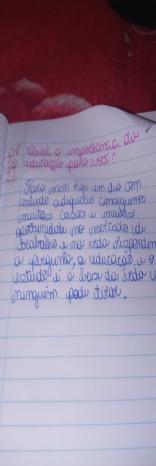 Qual a importância da
educação para você?
Para mim hoje em dia com
estudo adequado conseguimos
muitas coisas e muitas
oportunidade no mercado de
trabalho e na vida respondendo
a pergunta, a educação e o
estudo é a base da
ninguém pode tirar.